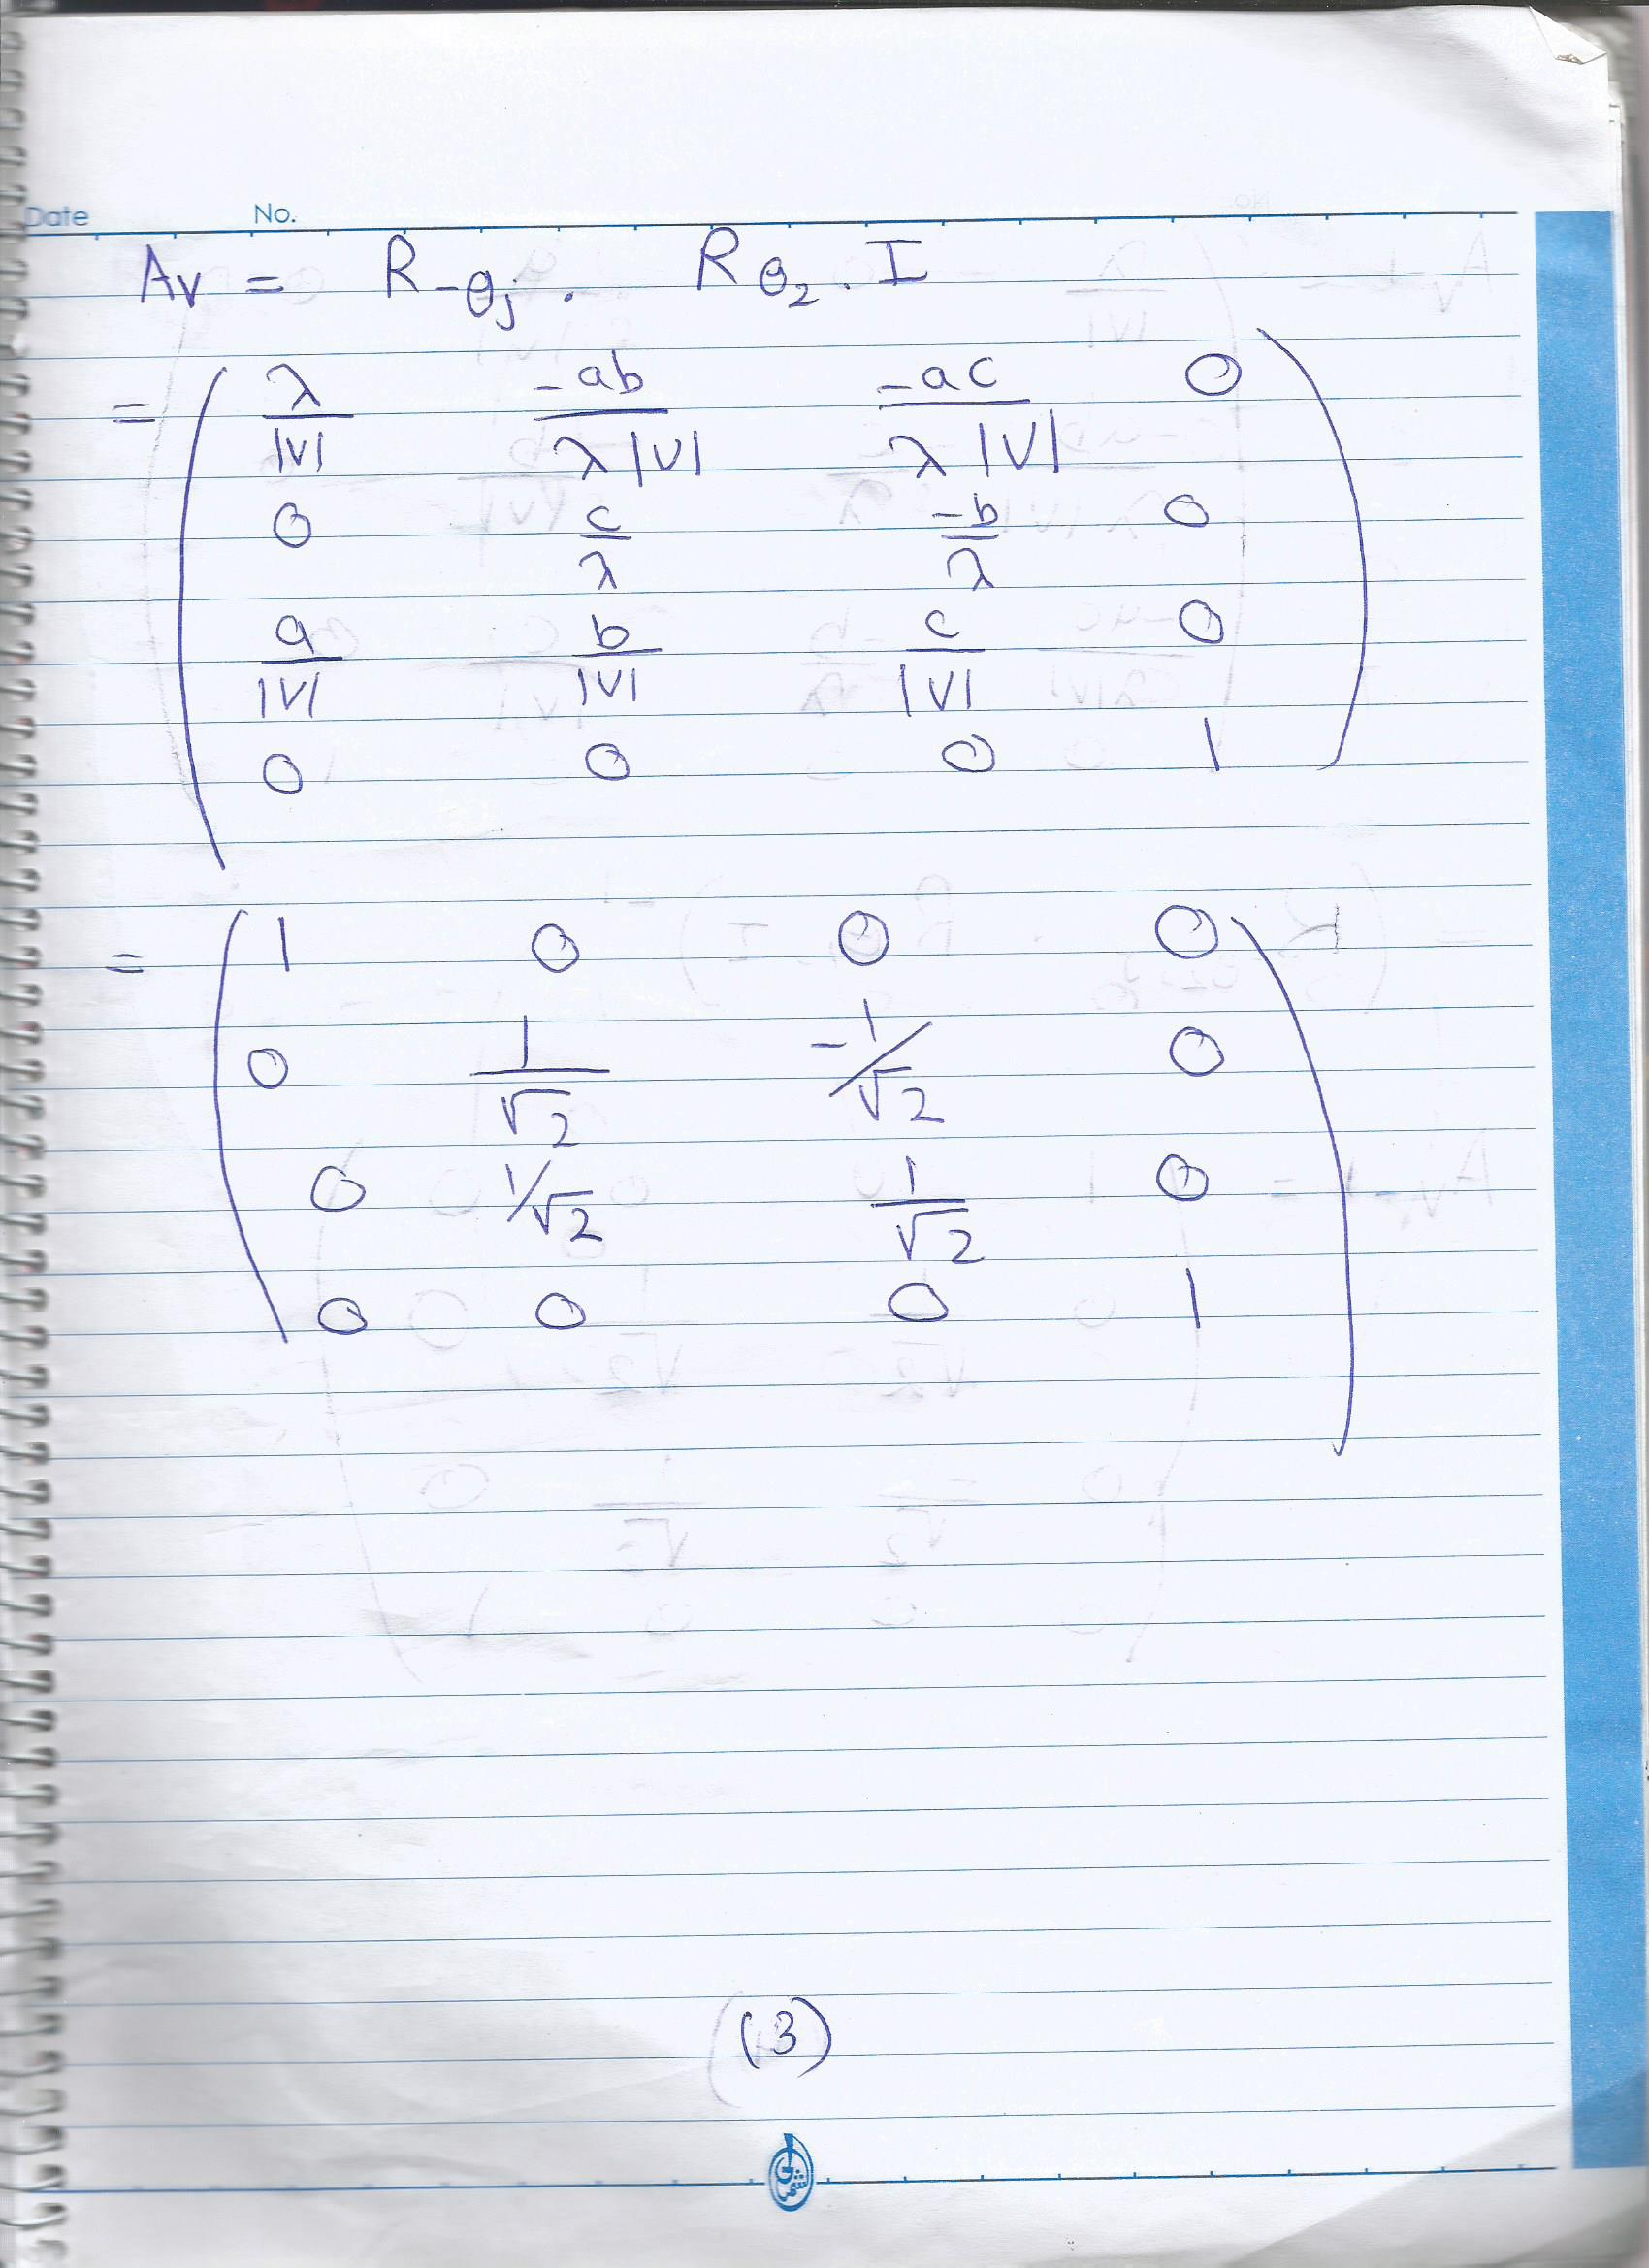 Date No.
Av = R-θj . Rθ2 . I
= ( λ/|V| -ab/λ|V| -ac/λ|V| 0
0 c/λ -b/λ 0
a/|V| b/|V| c/|V| 0
0 0 0 1 )
= ( 1 0 0 0
0 1/√2 -1/√2 0
0 1/√2 1/√2 0
0 0 0 1 )
(3)